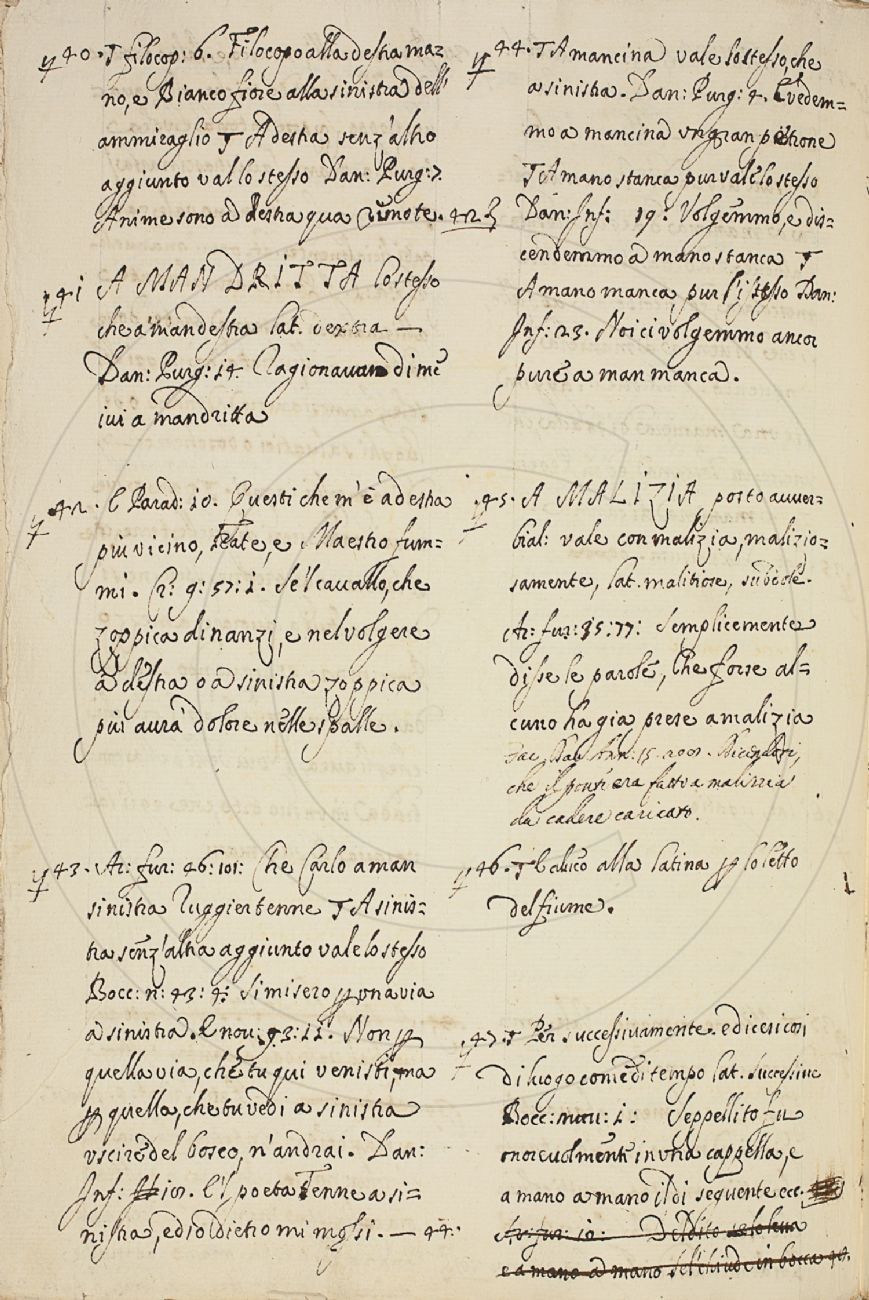 40. T filocop: 6. Filocopo alla destra ma=
no, e Biancofiore alla sinistra dell'
ammiraglio T A destra senz'altro
aggiunto val lo stesso Dan: Purg: 7.
Anime sono à destra qua rimote. 42
41 A MAN DRITTA lo stesso
che a man destra lat. dextra —
Dan: Purg: 14. Ragionavan di me
ivi a mandritta
42. E Parad: 10. Questi che m'è a destra
più vicino, frate, e Maestro fum=
mi. Cr: 9: 57: 1. Se'l cavallo, che
zoppica dinanzi, e nel volgere
à destra o a sinistra zoppica
più aura dolore nelle spalle.
43. Ar: fur: 46: 101: Che Carlo a man
sinistra Ruggier tenne T A sinis=
tra senz'altra aggiunto vale lo stesso
Bocc: n: 43: 4: Si misero p una via
a sinistra. E nou: 43: 11. Non p
quella via, che tu qui venisti, ma
p quella, che tu vedi a sinistra
uscire del bosco, n'andrai. Dan:
Inf: 18. E'l poeta tenne a si=
nistra, ed io dietro mi mossi. — 44.
44. T A mancina vale lo stesso, che
a sinistra. Dan: Purg: 4. E vedem=
mo a mancina un gran petrone
T A mano stanca pur vale lo stesso
Dan: Inf: 19. Volgemmo, e dis=
cendemmo à mano stanca T
A mano manca pur l'istesso Dan:
Inf: 23. Noi ci volgemmo ancor
pure a man manca.
45. A MALIZIA posto avver=
bial: vale con malizia, malizio=
samente, lat. malitiose, subdole.
Ar: fur: 35: 77: Semplicemente
disse le parole, Che forse al=
cuno ha gia prese a malizia
che il ponte era fatto a malizia
da cadere caricato.
46. T E detto alla latina p lo letto
del fiume.
47. T Per successivamente. e dicesi così
di luogo come di tempo lat. successive
Bocc: nou: 1: Seppellito fu
onorevolmente in una cappella, e
a mano a mano il dì seguente ecc.
Ar: fur: 10:
e a mano à mano se'l chiude in bocca